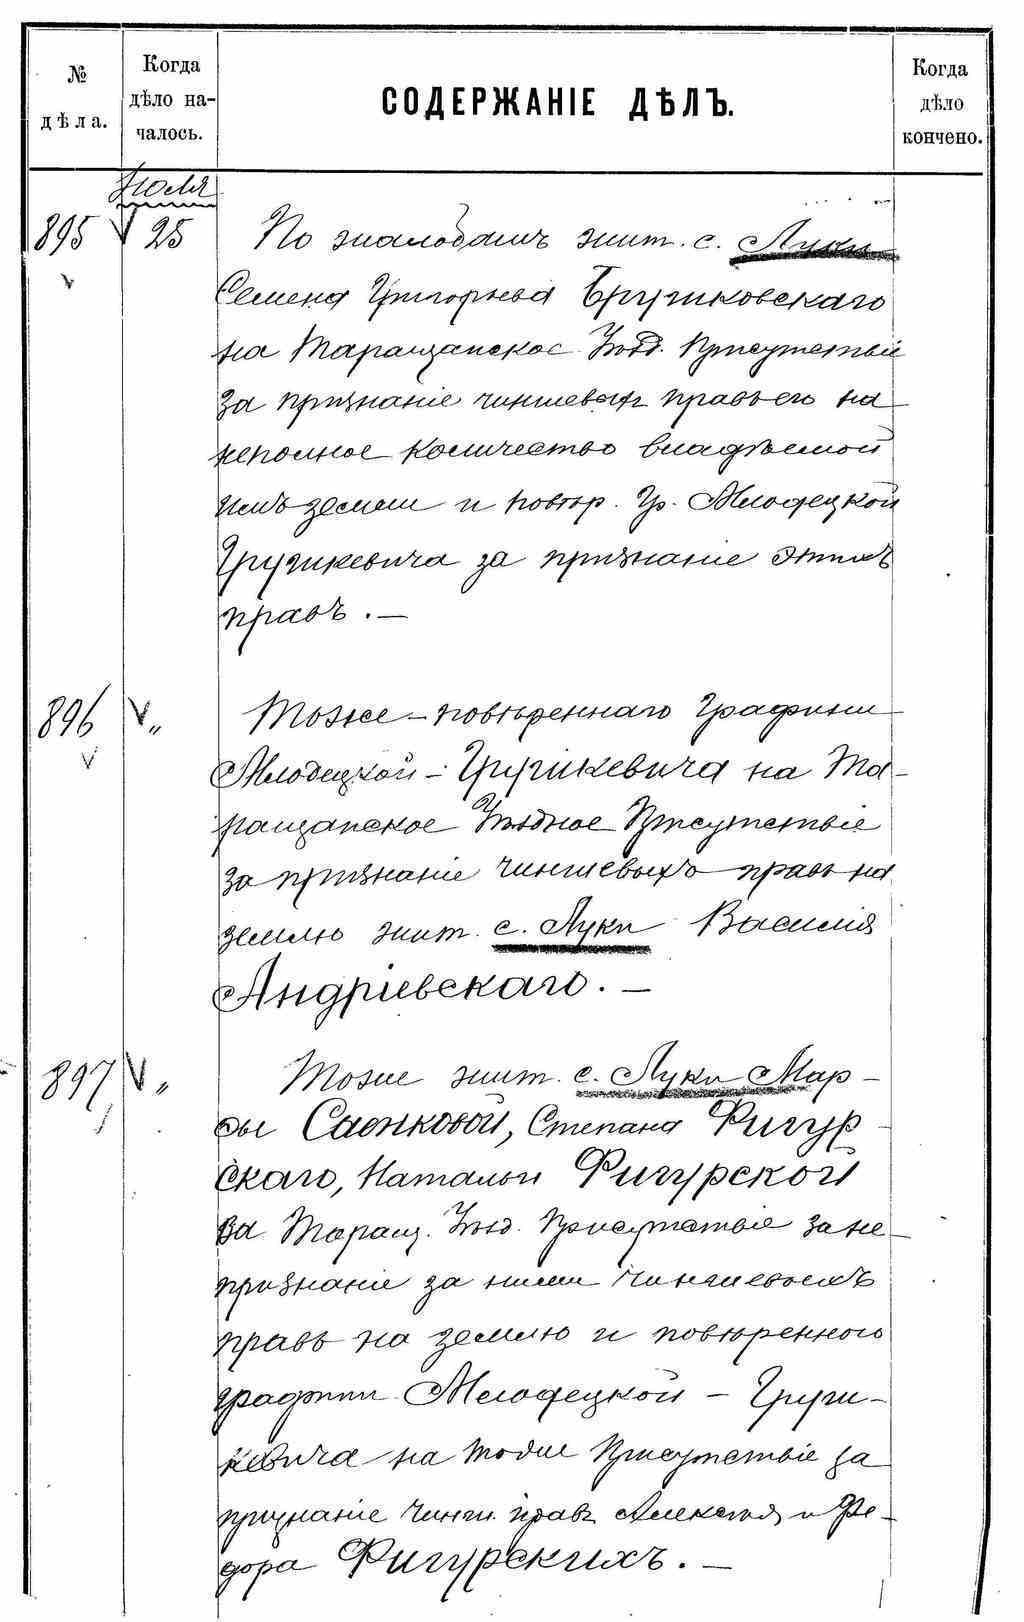 № дѣла.
Когда дѣло началось.
СОДЕРЖАНІЕ ДѢЛЪ.
Когда дѣло кончено.
Іюля
895 25 По жалобамъ жит. с. Луки
Семена Григорьева Бружковскаго
на Таращанское Уѣзд. Присутствіе
за признаніе чиншевыхъ правъ его на
неполное количество владѣемой
имъ земли и повѣр. Гр. Млодецкой
Гружкевича за признаніе этихъ
правъ. —
896 „ Тоже — повѣреннаго Графини
Млодецкой — Гружкевича на Та-
ращанское Уѣздное Присутствіе
за признаніе чиншевыхъ правъ на
землю жит. с. Луки Василія
Андріевскаго. —
897 „ Тоже жит. с. Луки Мар-
ѳы Степана Фигур-
скаго, Натальи Фигурской
на Таращ. Уѣзд. Присутствіе за не-
признаніе за ними чиншевыхъ
правъ на землю и повѣренного
графини Млодецкой — Груж-
кевича на тоже Присутствіе за
признаніе чинш. правъ Алексѣя и Фе-
дора Фигурскихъ. —